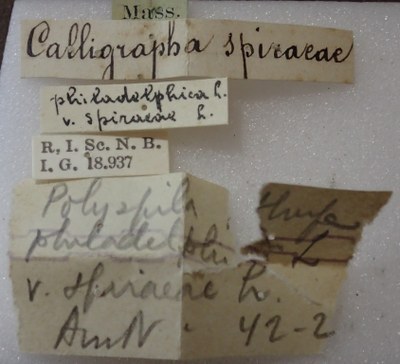 Mass.
Calligrapha spiraeae
philadelphica L.
v. spiraeae L.
R. I. Sc. N. B.
I. G. 18.937
Polyspila
philadelphi L
v. spiraeae L.
Am N. 42-2